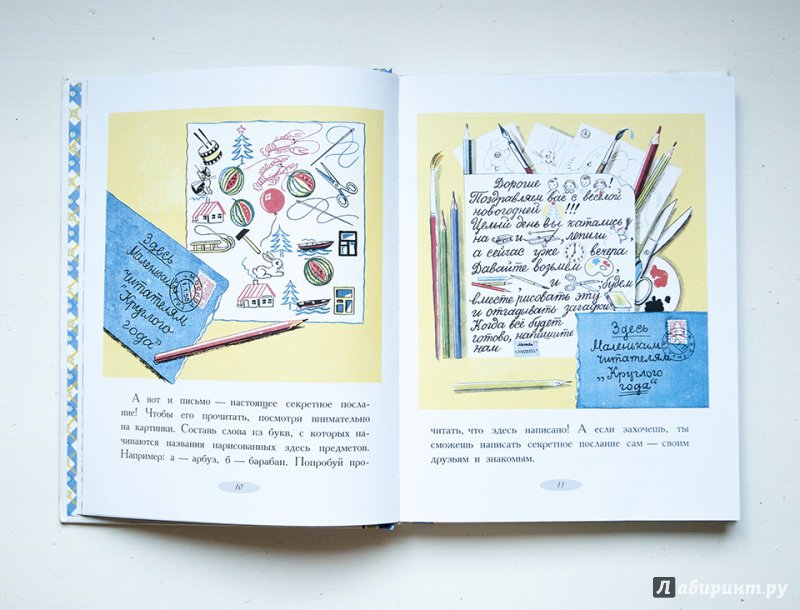 Здесь
Маленьким
читателям
"Круглого
года"
А вот и письмо — настоящее секретное посла-
ние! Чтобы его прочитать, посмотри внимательно
на картинки. Составь слова из букв, с которых на-
чинаются названия нарисованных здесь предметов.
Например: а — арбуз, б — барабан. Попробуй про-
10
Дорогие !
Поздравляем вас с веселой
новогодней !!!
Целый день вы катались
на и , лепили
, а сейчас уже вечера.
Давайте возьмем ,
, и будем
вместе рисовать эту
и отгадывать загадки.
Когда всё будет
готово, напишите
нам
Здесь
Маленьким
читателям
„Круглого
года"
читать, что здесь написано! А если захочешь, ты
сможешь написать секретное послание сам — своим
друзьям и знакомым.
11
Лабиринт.ру